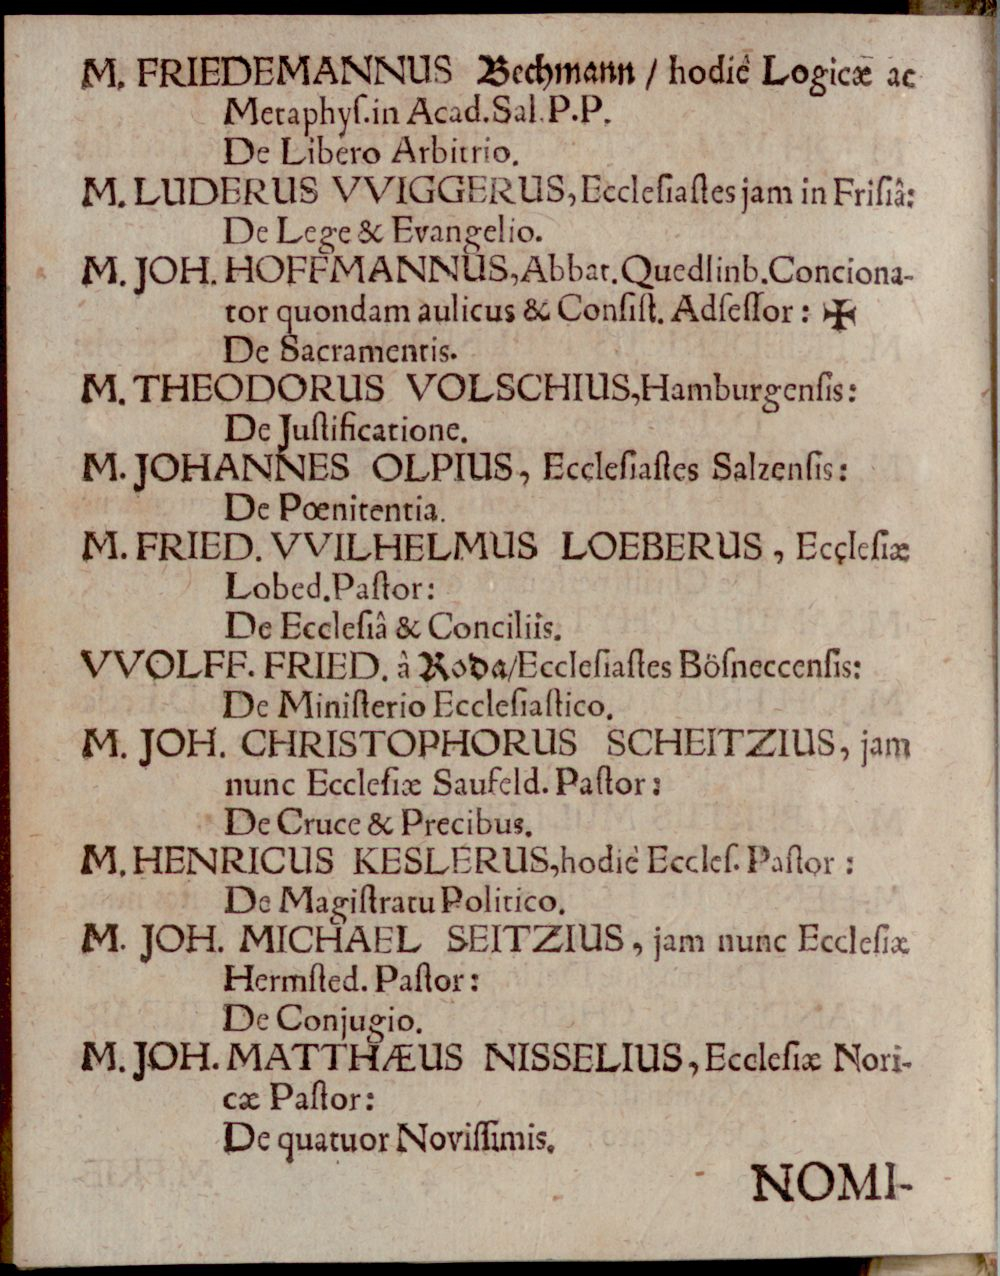 M. FRIEDEMANNUS Bechmann / hodiè Logicæ ac
Metaphyſ. in Acad. Sal. P.P.
De Libero Arbitrio.
M. LUDERUS VVIGGERUS, Eccleſiaſtes jam in Friſiâ:
De Lege & Evangelio.
M. JOH. HOFFMANNUS, Abbat. Quedlinb. Conciona-
tor quondam aulicus & Conſiſt. Adſeſſor: ✠
De Sacramentis.
M. THEODORUS VOLSCHIUS, Hamburgenſis:
De Juſtificatione.
M. JOHANNES OLPIUS, Eccleſiaſtes Salzenſis:
De Pœnitentia.
M. FRIED. VVILHELMUS LOEBERUS, Eccleſiæ
Lobed. Paſtor:
De Eccleſiâ & Conciliis.
VVOLFF. FRIED. â Roda/ Eccleſiaſtes Böſneccenſis:
De Miniſterio Eccleſiaſtico.
M. JOH. CHRISTOPHORUS SCHEITZIUS, jam
nunc Eccleſiæ Saufeld. Paſtor:
De Cruce & Precibus.
M. HENRICUS KESLERUS, hodiè Eccleſ. Paſtor:
De Magiſtratu Politico.
M. JOH. MICHAEL SEITZIUS, jam nunc Eccleſiæ
Hermſted. Paſtor:
De Conjugio.
M. JOH. MATTHÆUS NISSELIUS, Eccleſiæ Nori-
cæ Paſtor:
De quatuor Noviſſimis.
NOMI-